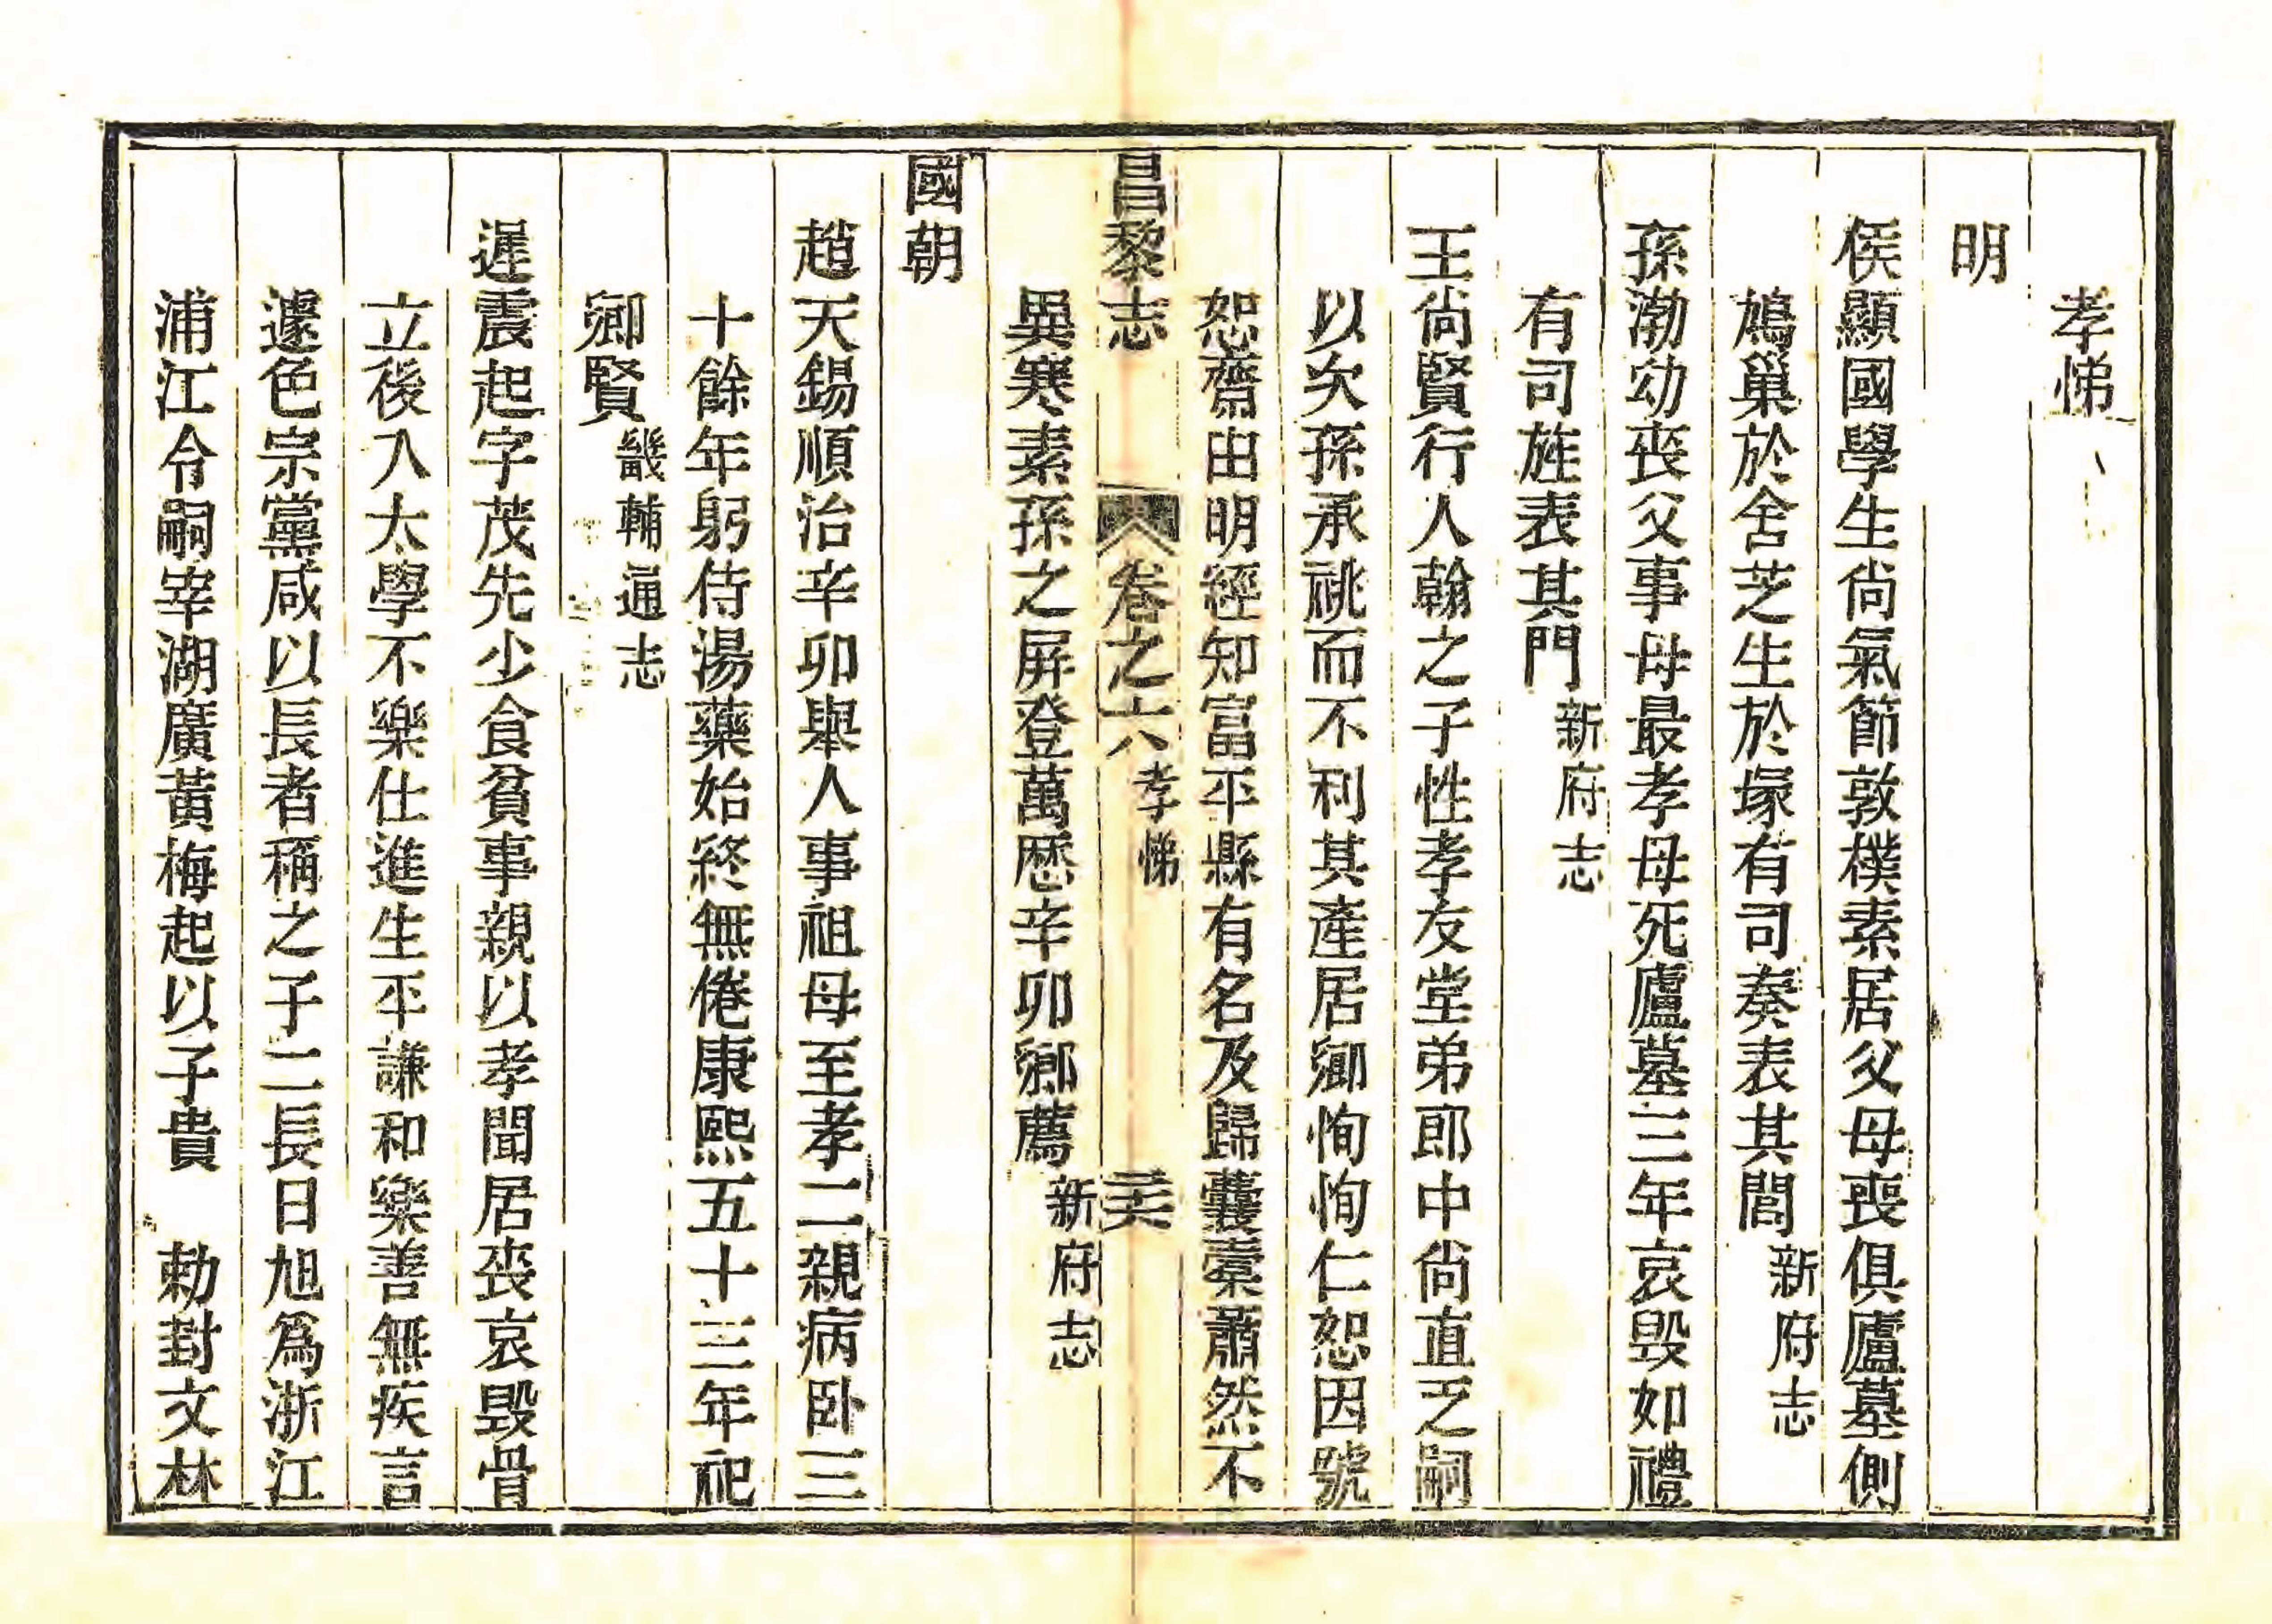 孝悌
明
侯顯國學生尙氣節敦樸素居父母喪俱廬墓側
鳩巢於舍芝生於塚有司奏表其閭新府志
孫渤幼喪父事母最孝母死廬墓三年哀毁如禮
有司旌表其門新府志
王尙賢行人翰之子性孝友堂弟郎中尙直乏嗣
以次孫承祧而不利其產居鄉恂恂仁恕因號
恕齋由明經知富平縣有名及歸囊橐蕭然不
異寒素孫之屏登萬歷辛卯鄉薦新府志
昌黎志 卷之六孝悌 二十六
國朝
趙天錫順治辛卯舉人事祖母至孝二親病卧三
十餘年躬侍湯藥始終無倦康熙五十三年祀
鄉賢畿輔通志
遲震起字茂先少食貧事親以孝聞居喪哀毁骨
立後入太學不樂仕進生平謙和樂善無疾言
遽色宗黨咸以長者稱之子二長日旭爲浙江
浦江令嗣宰湖廣黃梅起以子貴 勅封文林